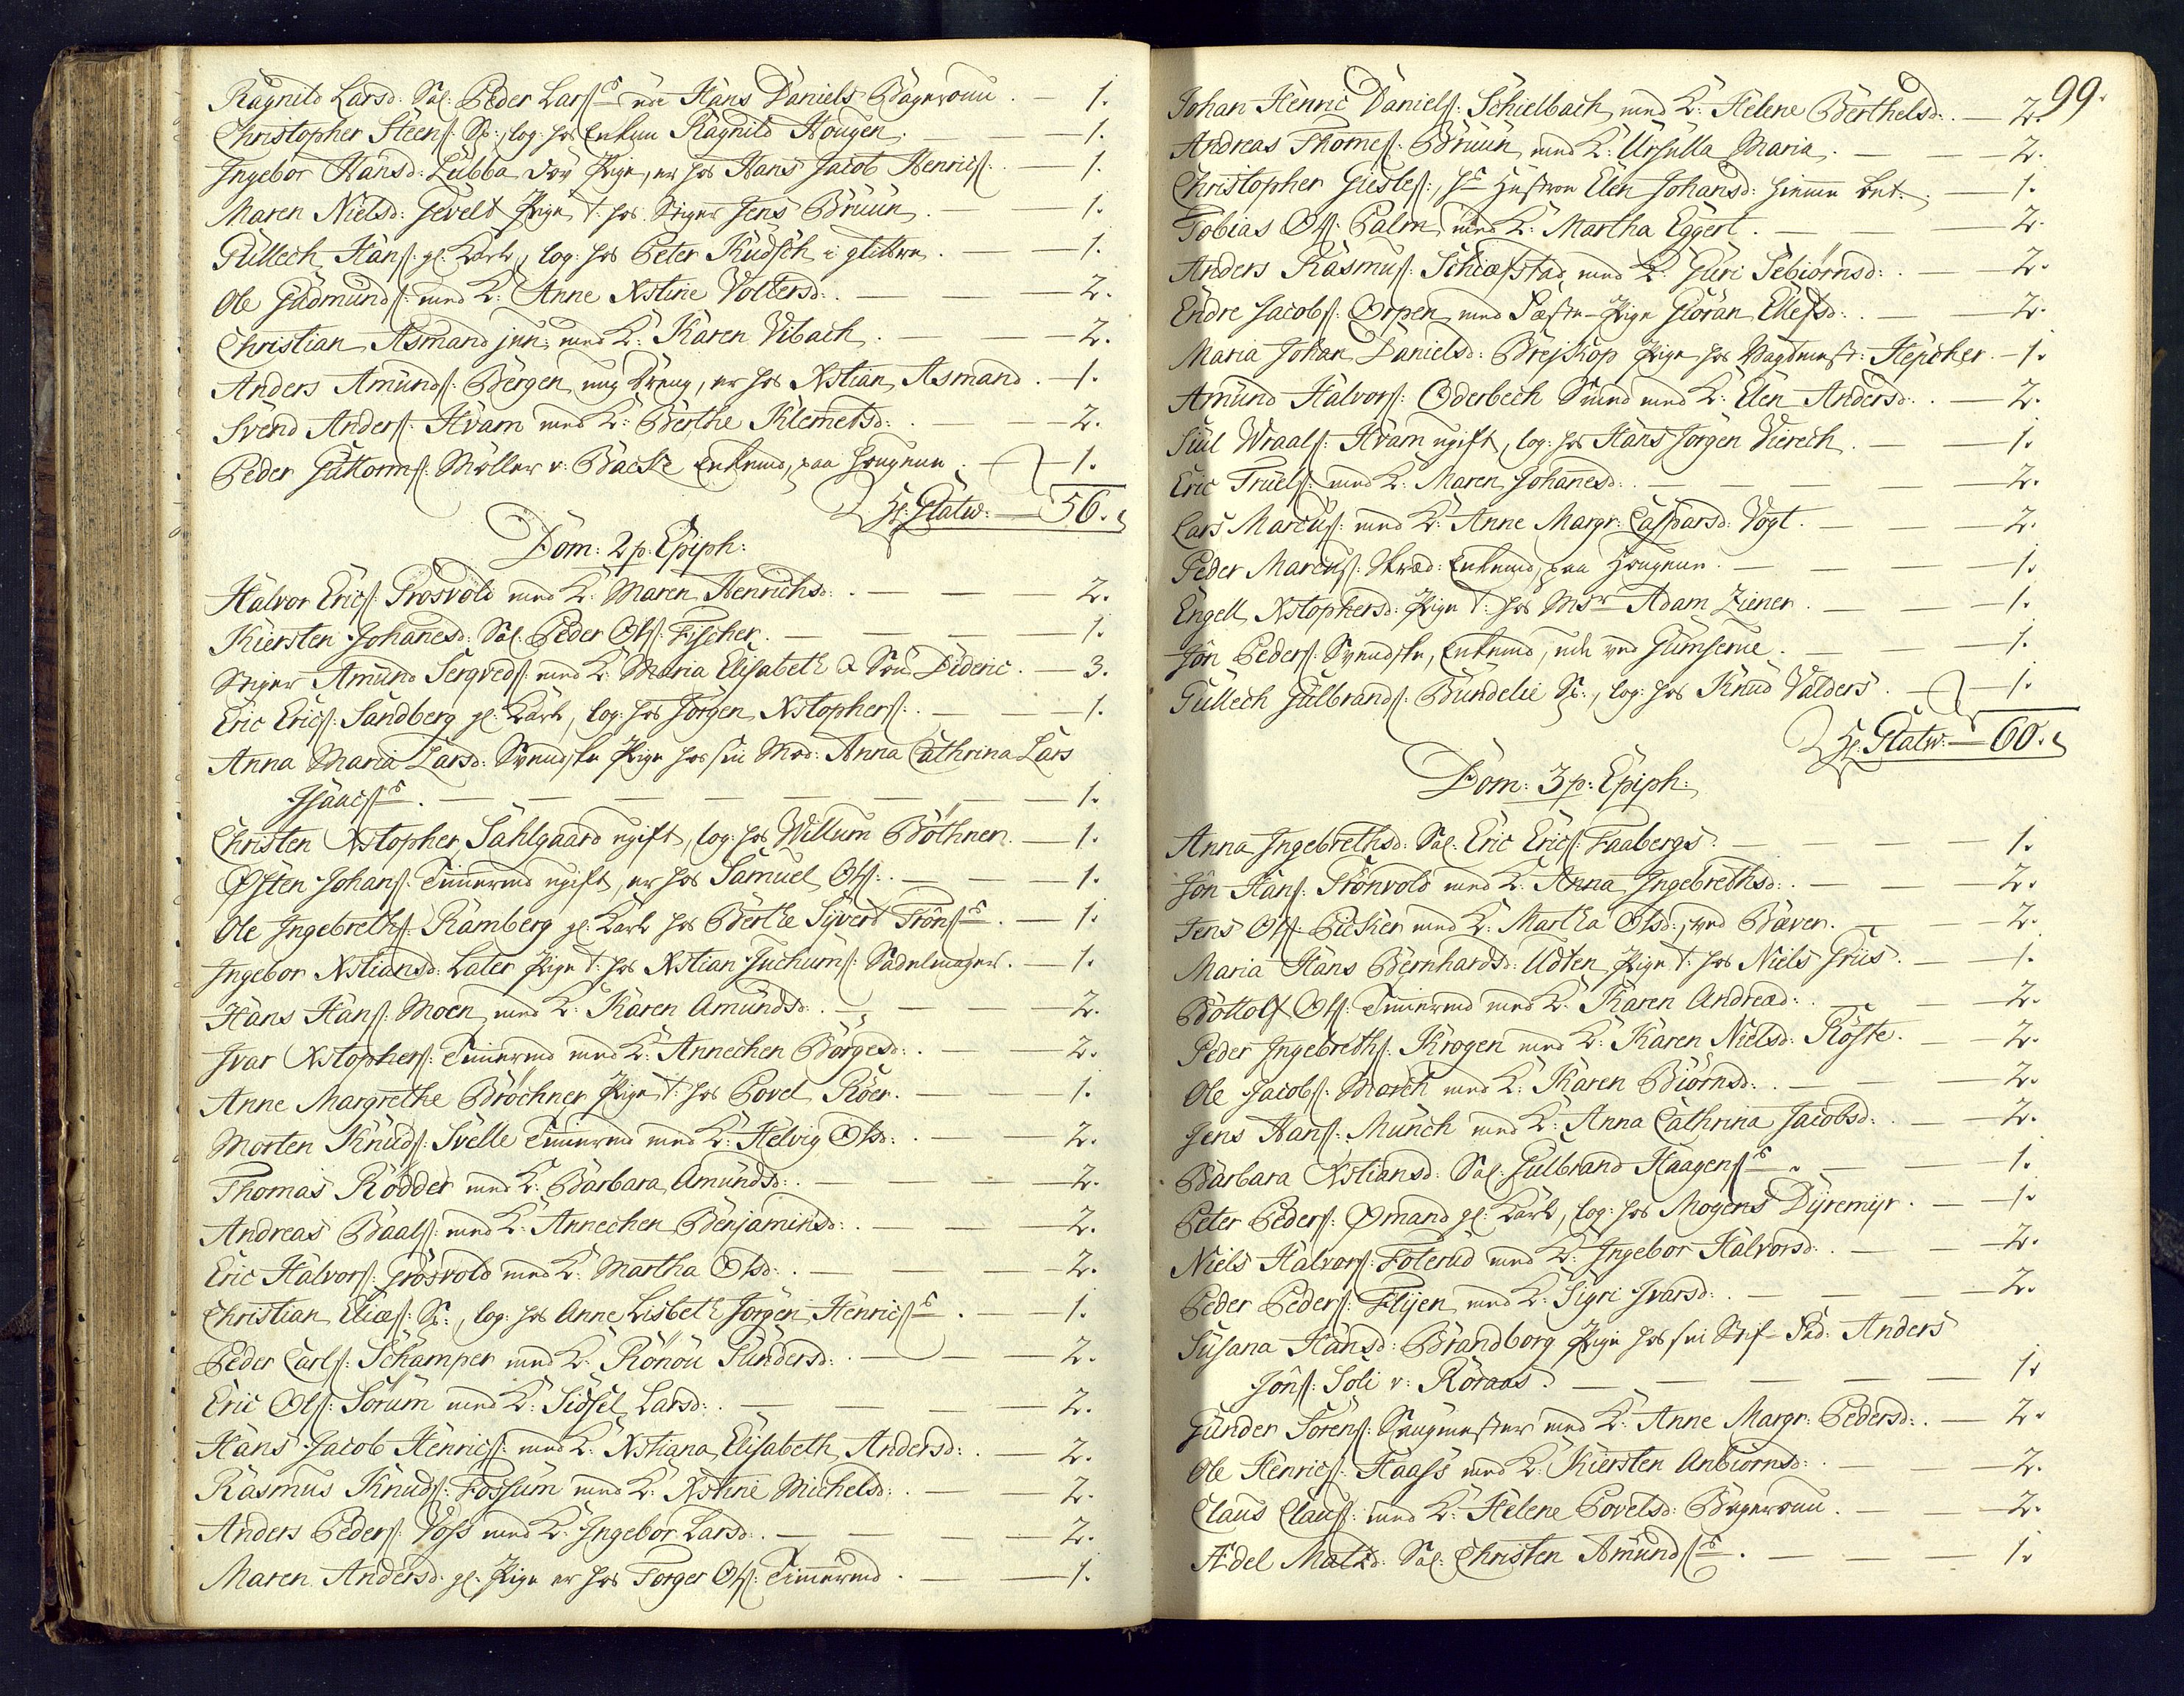 Ragnild Larsd: Sal: Peder Larsſ:s ude Hans Daniels Bagerovn. — 1.
Christopher Steenſ: Sk:, log: hos Enken Ragnild Hougen. — 1.
Ingebor Hansd: Lubba Døv Pige, er hos Hans Jacob Henricſ: — 1.
Maren Nielsd: Gevelt Pige t: hos Stiger Jens Bruun. — 1.
Gullech Hanſ: gl: Karl, log: hos Peter Kudsch i glitteren. — 1.
Ole Gudmundſ: med K: Anne Xstine Voltersd: — 2.
Christian Asmand jun: med K: Karen Vibach. — 2.
Anders Amundſ: Bergen ung Dreng, er hos Xstian Asmand. — 1.
Svend Anderſ: Hvam med K: Berthe Klemetsd: — 2.
Peder Guttormſ: Møller v: Bache Enkemd, paa Hougene. — 1.
H: Statw: — 56.
Dom: 2 p: Epiph:
Halvor Ericſ: Grosvold med K: Maren Henrichsd: — 2.
Kiersten Johanesd: Sal: Peder Olſ: Fischer. — 1.
Stiger Amund Sergvedſ: med K: Maria Elisabeth & Søn Dideric. — 3.
Eric Ericſ: Sandberg gl: Karl, log: hos Jørgen Xstopherſ: — 1.
Anna Maria Larsd: Svendske Pige hos sin Mod: Anna Cathrina Lars
Isaacſ:s — 1.
Christen Xstopher Sahlgaard ugift, log: hos Willum Bøthner. — 1.
Østen Johanſ: Timermd ugift, er hos Samuel Olſ: — 1.
Ole Ingebrethſ: Ramberg gl: Karl hos Berthe Sivert Trönſ:s — 1.
Ingebor Xstiansd: Later Pige t: hos Xstian Juchumſ: Sadelmager. — 1.
Hans Hanſ: Moen med K: Karen Amundsd: — 2.
Ivar Xstopherſ: Timermd med K: Annechen Børgesd: — 2.
Anne Margrethe Brøchner Pige t: hos Povel Röer. — 1.
Morten Knudſ: Svelle Timermd med K: Helvig Olsd: — 2.
Thomas Rödder med K: Barbara Amundsd: — 2.
Andreas Baalſ: med K: Annechen Benjaminsd: — 2.
Eric Halvorſ: Grosvold med K: Martha Olsd: — 2.
Christian Eliæſ: Sk:, log: hos Anne Lisbeth Jørgen Henricſ:s — 1.
Peder Carlſ: Schamper med K: Rönöu Gundersd: — 2.
Eric Olſ: Sørum med K: Sidsel Larsd: — 2.
Hans Jacob Henricſ: med K: Xstiana Elisabeth Andersd: — 2.
Rasmus Knudſ: Fossum med K: Xstine Michelsd: — 2.
Anders Pederſ: Voss med K: Ingebor Larsd: — 2.
Maren Andersd: gl: Pige er hos Torger Olſ: Timermd. — 1.
99.
Johan Henric Danielſ: Schielbach, med K: Helene Berthelsd: — 2.
Andreas Thomeſ: Bruun, med K: Ursulla Maria. — 2.
Christopher Giesleſ:, hs Hustroe Elen Johansd: hiemme ber: — 1.
Tobias Olſ: Palm, med K: Martha Eggert. — 2.
Anders Rasmuſ: Schiæfstad med K: Guri Sebiørnsd: — 2.
Endre Jacobſ: Orpen, med Fæste-Pige Gioran Ellefsd: — 2.
Maria Johan Danielsd: Brejskop Pige hos Vagtmest: Hejdcher. — 1.
Amund Halvorſ: Oderbech Smed med K: Elen Andersd: — 2.
Siul Wraalſ: Hvam ugift, log: hos Hans Jørgen Viereck. — 1.
Eric Truelſ: med K: Maren Johanesd: — 2.
Lars Marcusſ: med K: Anne Margr: Caspersd: Vogt. — 2.
Peder Marcusſ: Skræd: Enkemd, paa Hougene. — 1.
Engell Xstophersd: Pige t: hos Msr Adam Ziener. — 1.
Jön Pederſ: Svendske, Enkemd, ude ved Gumserne. — 1.
Gullech Gulbrandſ: Bundelie Sk:, log: hos Knud Valders. — 1.
H: Statw: — 60.
Dom: 3 p: Epiph:
Anna Ingebrethsd: Sal: Eric Ericſ: Faabergs. — 1.
Jön Hanſ: Grönvold med K: Anna Ingebrethsd: — 2.
Jens Olſ: Picker med K: Martha Olsd:, ved Bæver. — 2.
Maria Hans Bernhardsd: Udten Pige t: hos Niels Griis. — 1.
Bottolf Olſ: Timermd med K: Karen Andread: — 2.
Peder Ingebrethſ: Krogen med K: Karen Nielsd: Röste. — 2.
Ole Jacobſ: March med K: Karen Biørnsd: — 2.
Jens Hanſ: Munch med K: Anna Cathrina Jacobsd: — 2.
Barbara Xstiansd: Sal: Gulbrand Haagenſ:s — 1.
Peter Pederſ: Ømand gl: Karl, log: hos Mogens Dyremyr. — 1.
Niels Halvorſ: Foterud med K: Ingebor Halvorsd: — 2.
Peder Pederſ: Flijen med K: Sigri Ivarsd: — 2.
Susana Hansd: Brandborg Pige hos sin Stif-Fad: Anders
Jönſ: Soli v: Röraas. — 1.
Gunder Sörenſ: Saugmester med K: Anne Margr: Pedersd: — 2.
Ole Henricſ: Haass med K: Kiersten Anbiornsd: — 2.
Claus Clausſ: med K: Helene Povelsd: Bagerovn. — 2.
Ædel Matsd: Sal: Christen Amundſ:s — 1.